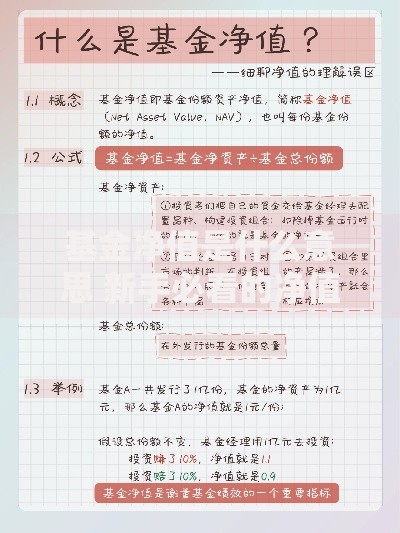 什么是基金净值？
——细聊净值的理解误区
1.1 概念
基金净值即基金份额资产净值，简称基金净值
（Net Asset Value，NAV），也叫每份基金份
额的净值。
1.2 公式
基金净值=基金净资产÷基金总份额
基金净资产：
①投资者们把自己的资金交给基金经理去配
置品种、构建投资组合；扣除掉基金运行时
基金总份额：
在外发行的基金份额总量
1.3 举例
基金A一共发行了1亿份，基金的净资产为1亿
元，那么基金A的净值就是1元/份；
假设总份额不变，基金经理用1亿元去投资：
投资赚了10%，净值就是1.1
投资赔了10%，净值就是0.9
基金净值是衡量基金绩效的一个重要指标
基金净值是什么意
思 新手必看的净值